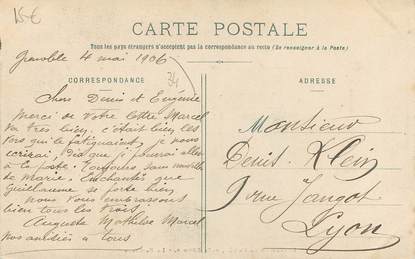 15€
CARTE POSTALE
Tous les pays étrangers n'acceptent pas la correspondance au recto (Se renseigner à la Poste)
Grenoble 4 mai 1906
34
CORRESPONDANCE
ADRESSE
Chers Denis et Eugénie
Merci de votre lettre Marcel
va très bien. c'était bien les
fors qui le fatiguaient, je vous
écrirai, dès que je pourrai aller
à la poste. Toujours sans nouvelle
de Marie. Enchantés que
Guillaume se porte bien
Nous vous embrassons
bien tous les trois.
Auguste Mathilde Marcel
Nos amitiés à tous
Monsieur
Denis Klein
9 rue Jangot
Lyon